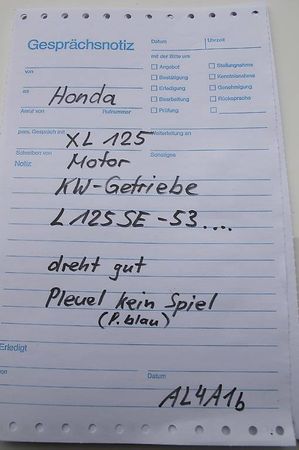 Gesprächsnotiz
Datum
Uhrzeit
von
mit der Bitte um
Angebot
Stellungnahme
Bestätigung
Kenntnisnahme
an
Honda
Erledigung
Genehmigung
Bearbeitung
Rücksprache
Anruf von
Rufnummer
Prüfung
pers. Gespräch mit
XL 125
Weiterleitung an
Schreiben von
Motor
Sonstiges
Notiz:
KW-Getriebe
L125SE-53....
dreht gut
Pleuel kein Spiel
(P.blau)
Erledigt
von
Datum
AL4A1b